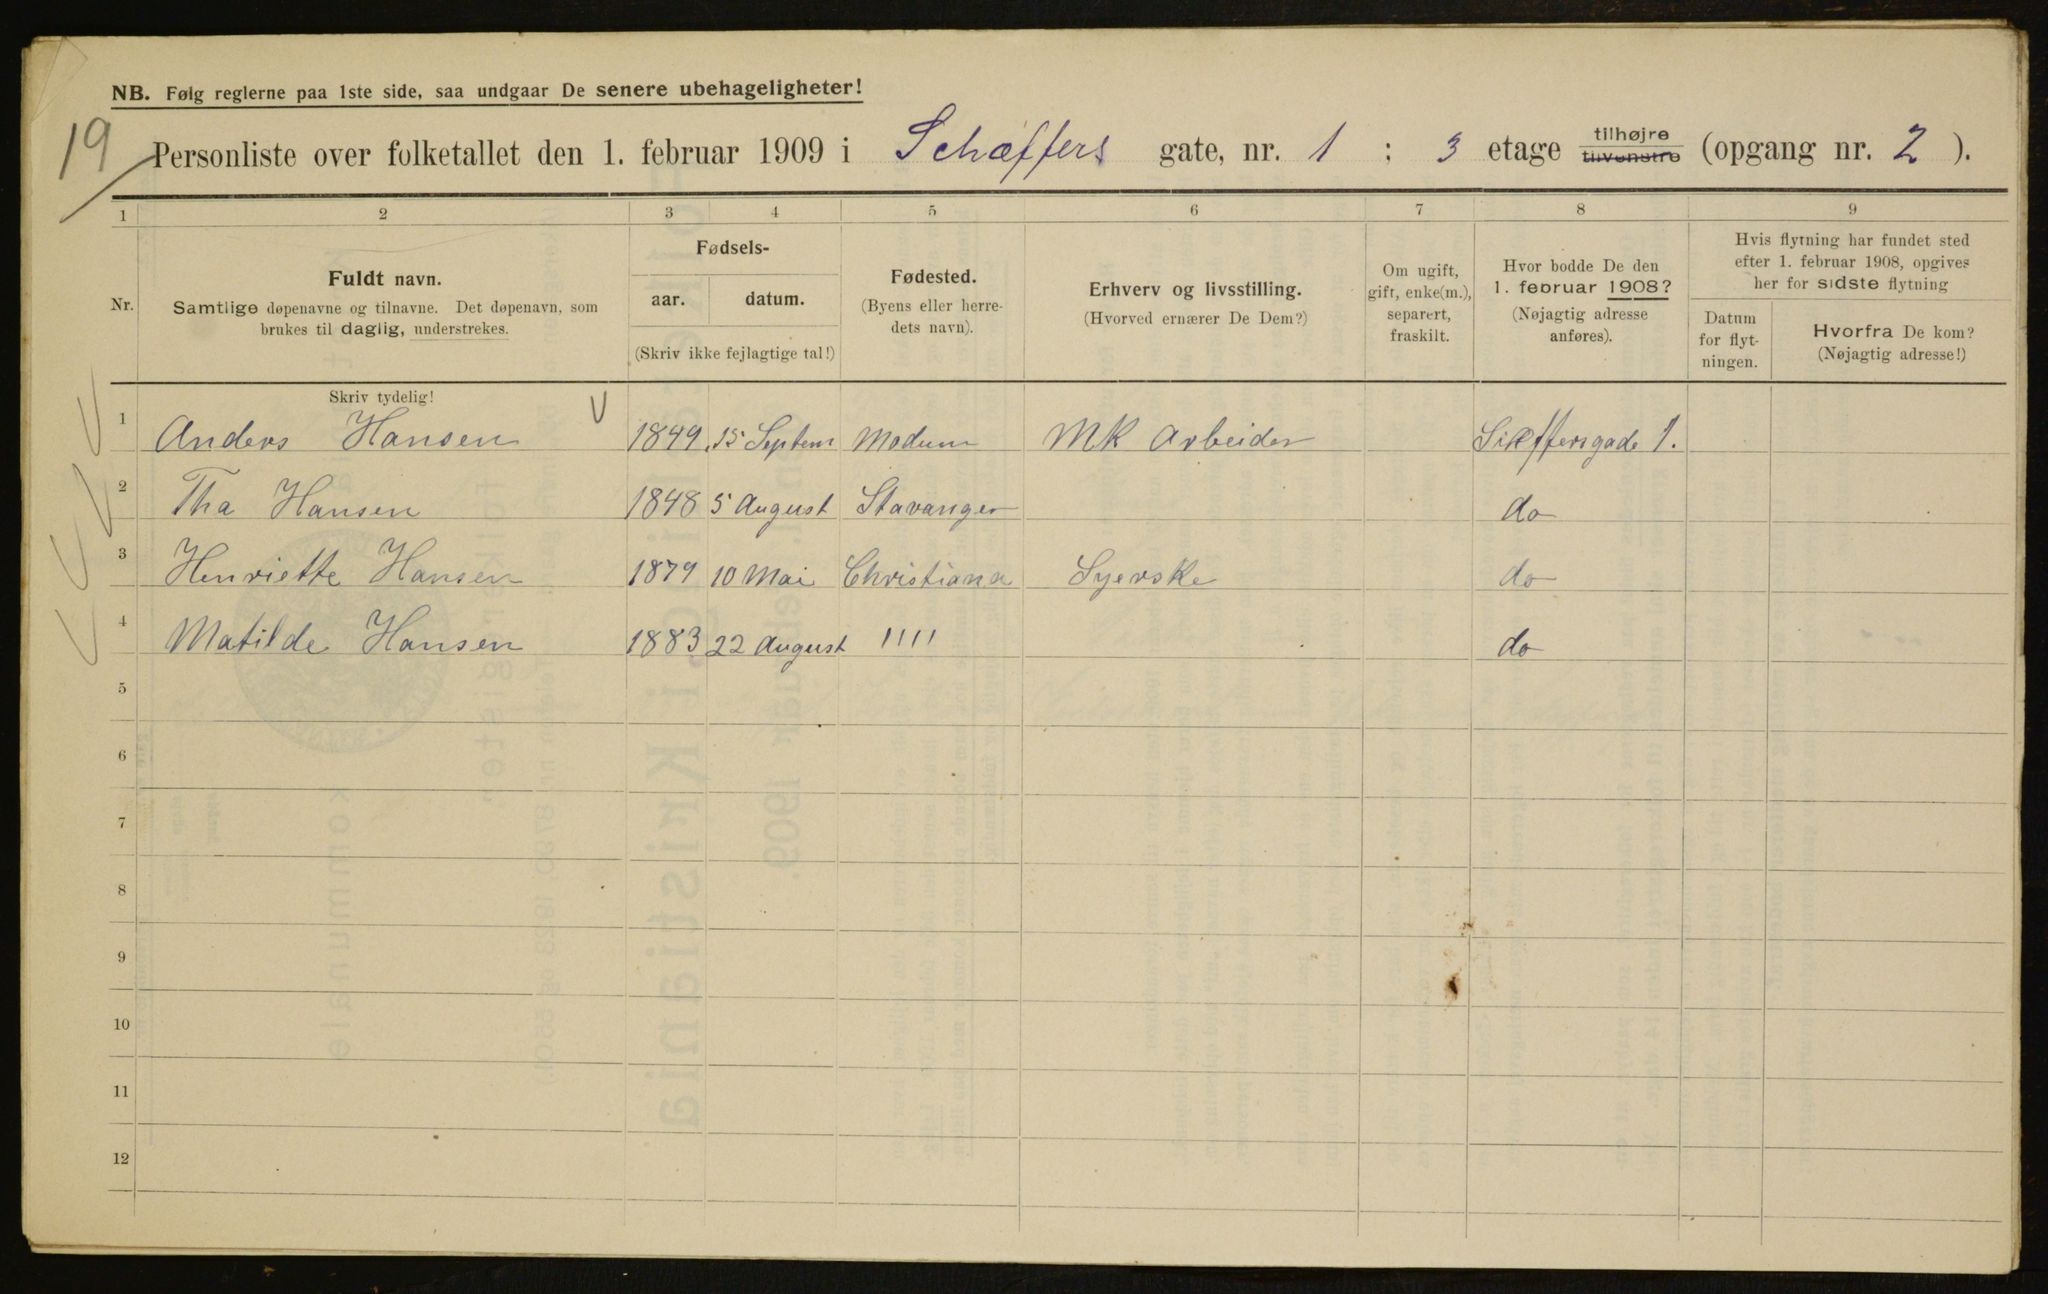 NB. Følg reglerne paa 1ste side, saa undgaar De senere ubehageligheter!
19
Personliste over folketallet den 1. februar 1909 i Schæffers gate, nr. 1 ; 3 etage tilhøjre tilvenstre (opgang nr. 2 ).
1 2 3 4 5 6 7 8 9
Nr.
Fuldt navn.
Samtlige døpenavne og tilnavne. Det døpenavn, som
brukes til daglig, understrekes.
Fødsels-
aar. datum.
(Skriv ikke fejlagtige tal!)
Fødested.
(Byens eller herre-
dets navn).
Erhverv og livsstilling.
(Hvorved ernærer De Dem?)
Om ugift,
gift, enke(m.),
separert,
fraskilt.
Hvor bodde De den
1. februar 1908?
(Nøjagtig adresse
anføres).
Hvis flytning har fundet sted
efter 1. februar 1908, opgives
her for sidste flytning
Datum
for flyt-
ningen.
Hvorfra De kom?
(Nøjagtig adresse!)
Skriv tydelig!
1 Anders Hansen 1849 15 Septem Modum MK Arbeider 1.
2 Tha Hansen 1848 5 August Stavanger do
3 Henriette Hansen 1879 10 Mai Christiana Syerske do
4 Matilde Hansen 1883 22 August '''' do
5
6
7
8
9
10
11
12